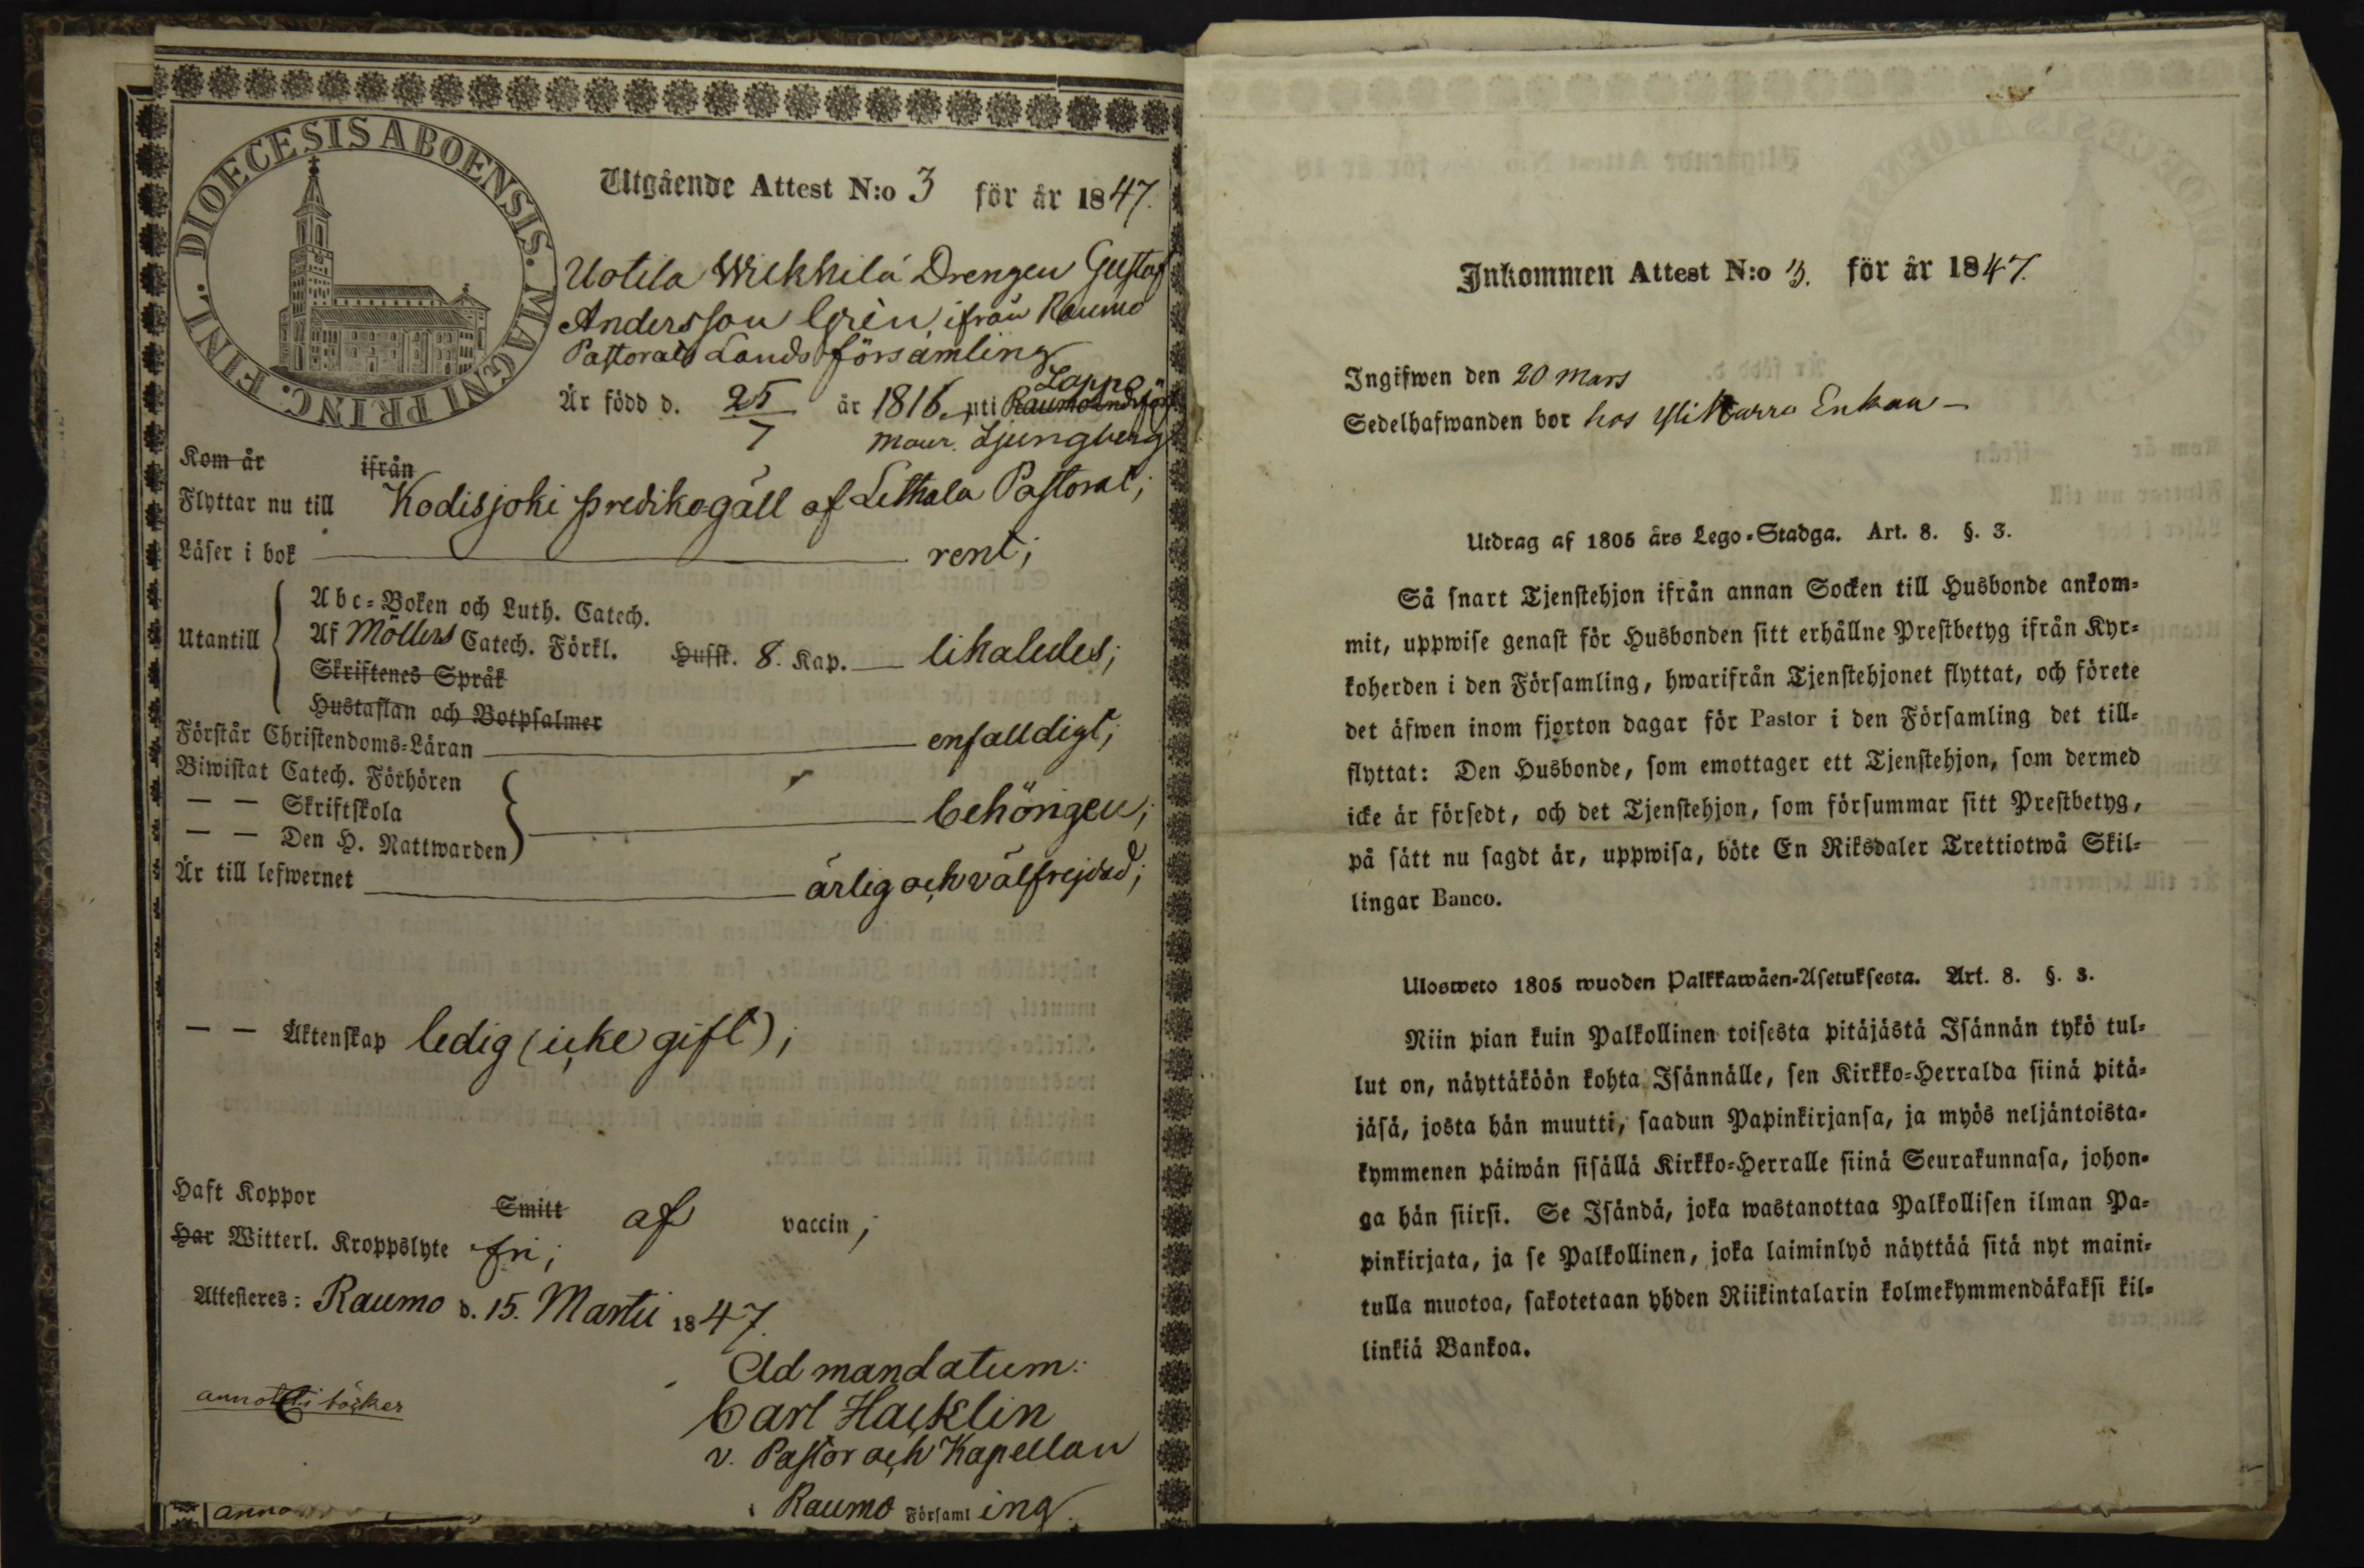 DIOECESIS ABOENSIS. MAGNI PRINC. FINL.
Utgående Attest N:o 3 för år 1847.
Uotila Wilkhilä Drengen Gustaf
Andersson Grén, ifrån Raumo
Pastorats Landsförsamling
Lappo
Är född d. 25/7 år 1816 uti Raumo
maur. Ljungberg
Kom år ifrån
Flyttar nu till Kodisjoki predikogäll af Lethala Pastorat;
Läser i bok rent;
Abc-Boken och Luth. Catech.
Utantill Af Möllers Catech. Förkl. Husst. 8. Kap. likaledes;
Skriftenes Språk
Hustaflan och Botpsalmer
Förstår Christendoms-Läran enfalldigt;
Biwistat Catech. Förhören
— — Skriftskola behörigen;
— — Den H. Nattwarden
Är till lefwernet ärlig och välfrejdad;
— — Äktenskap ledig (icke gift);
Haft Koppor Smitt af vaccin;
Har Witterl. Kroppslyte fri;
Attesteres: Raumo d. 15. Martii 1847.
Ad mandatum:
Carl Hacklin
v. Pastor och Kapellan
i Raumo Församling.
böcker
anno
Inkommen Attest N:o 3. för år 1847.
Ingifwen den 20 Mars
Sedelhafwanden bor hos Enkan —
Utdrag af 1805 års Lego-Stadga. Art. 8. §. 3.
Så snart Tjenstehjon ifrån annan Socken till Husbonde ankom-
mit, uppwise genast för Husbonden sitt erhållne Prestbetyg ifrån Kyr-
koherden i den Församling, hwarifrån Tjenstehjonet flyttat, och förete
det äfwen inom fjorton dagar för Pastor i den Församling det till-
flyttat: Den Husbonde, som emottager ett Tjenstehjon, som dermed
icke är försedt, och det Tjenstehjon, som försummar sitt Prestbetyg,
på sätt nu sagdt är, uppwisa, böte En Riksdaler Trettiotwå Skil-
lingar Banco.
Ulosweto 1805 wuoden Palkkawäen-Asetuksesta. Art. 8. §. 3.
Niin pian kuin Palkollinen toisesta pitäjästä Isännän tykö tul-
lut on, näyttäköön kohta Isännälle, sen Kirkko-Herralda siinä pitä-
jäsä, josta hän muutti, saadun Papinkirjansa, ja myös neljäntoista-
kymmenen päiwän sisällä Kirkko-Herralle siinä Seurakunnasa, johon-
ga hän siirsi. Se Isändä, joka wastanottaa Palkollisen ilman Pa-
pinkirjata, ja se Palkollinen, joka laiminlyö näyttää sitä nyt maini-
tulla muotoa, sakotetaan yhden Riikintalarin kolmekymmendäkaksi kil-
linkiä Bankoa.